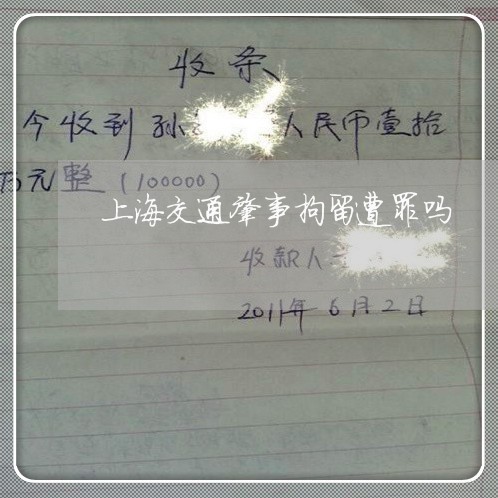 收条
今收到孙 人民币壹拾
万元整(100000)
上海交通肇事拘留遭罪吗
收款人
2011年6月2日